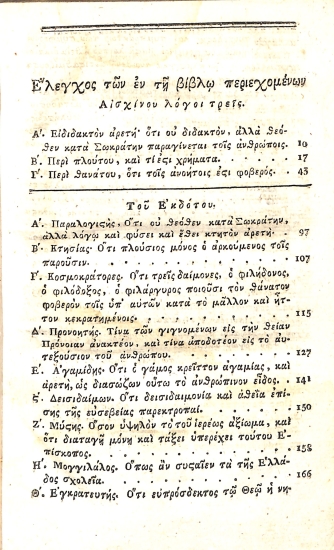 Ἔλεγχος τῶν ἐν τῇ βίβλῳ περιεχομένων
Αἰσχίνου λόγοι τρεῖς.
Α΄. Εἰ διδακτὸν ἀρετή· ὅτι οὐ διδακτὸν, ἀλλὰ θεό-
θεν κατὰ Σωκράτην παραγίνεται τοῖς ἀνθρώποις. 10
Β΄. Περὶ πλούτου, καὶ τί ἐςι χρήματα. 17
Γ΄. Περὶ θανάτου, ὅτι τοῖς ἀνοήτοις ἐςὶ φοβερός. 45
Τοῦ Ἐκδότου.
Α΄. Παραλογιςής. Ὅτι οὐ θεόθεν κατὰ Σωκράτην,
ἀλλὰ λόγῳ καὶ φύσει καὶ ἔθει κτητὸν ἀρετή. 97
Β΄. Κτησίας· Ὅτι πλούσιος μόνος ὁ ἀρκούμενος τοῖς
παροῦσιν. 107
Γ΄. Κοσμοκράτορες. Ὅτι τρεῖς δαίμονες, ὁ φιλήδονος,
ὁ φιλόδοξος, ὁ φιλάργυρος ποιοῦσι τὸν θάνατον
φοβερὸν τοῖς ὑπ᾽ αὐτῶν κατὰ τὸ μᾶλλον καὶ ἧτ-
τον κεκρατημένοις. 115
Δ΄. Προνοητής. Τίνα τῶν γιγνομένων εἰς τὴν θείαν
Πρόνοιαν ἀνακτέον, καὶ τίνα ἀποδοτέον εἰς τὸ αὐ-
τεξούσιον τοῦ ἀνθρώπου. 127
Ε΄. Ἀγαμίδης· Ὅτι ὁ γάμος κρεῖττον ἀγαμίας, καὶ
ἀρετὴ, ὡς διασώζων οὕτω τὸ ἀνθρώπινον εἶδος. 141
Ϛ΄. Δεισιδαίμων· Ὅτι δεισιδαιμονία καὶ ἀθεΐα ἐπί-
σης τῆς εὐσεβείας παρεκτροπαί. 150
Ζ΄. Μύςης. Ὅσον ὑψηλὸν τὸ τοῦ ἱερέως ἀξίωμα, καὶ
ὅτι διαταγῇ μόνῃ καὶ τάξει ὑπερέχει τούτου Ἐ-
πίσκοπος. 158
Η΄. Μογγιλάλος. Ὅπως ἂν συςαῖεν τὰ τῆς Ἑλλά-
δος σχολεῖα. 166
Θ΄. Ἐγκρατευτής. Ὅτι εὐπρόσδεκτος τῷ Θεῷ ἡ νη-